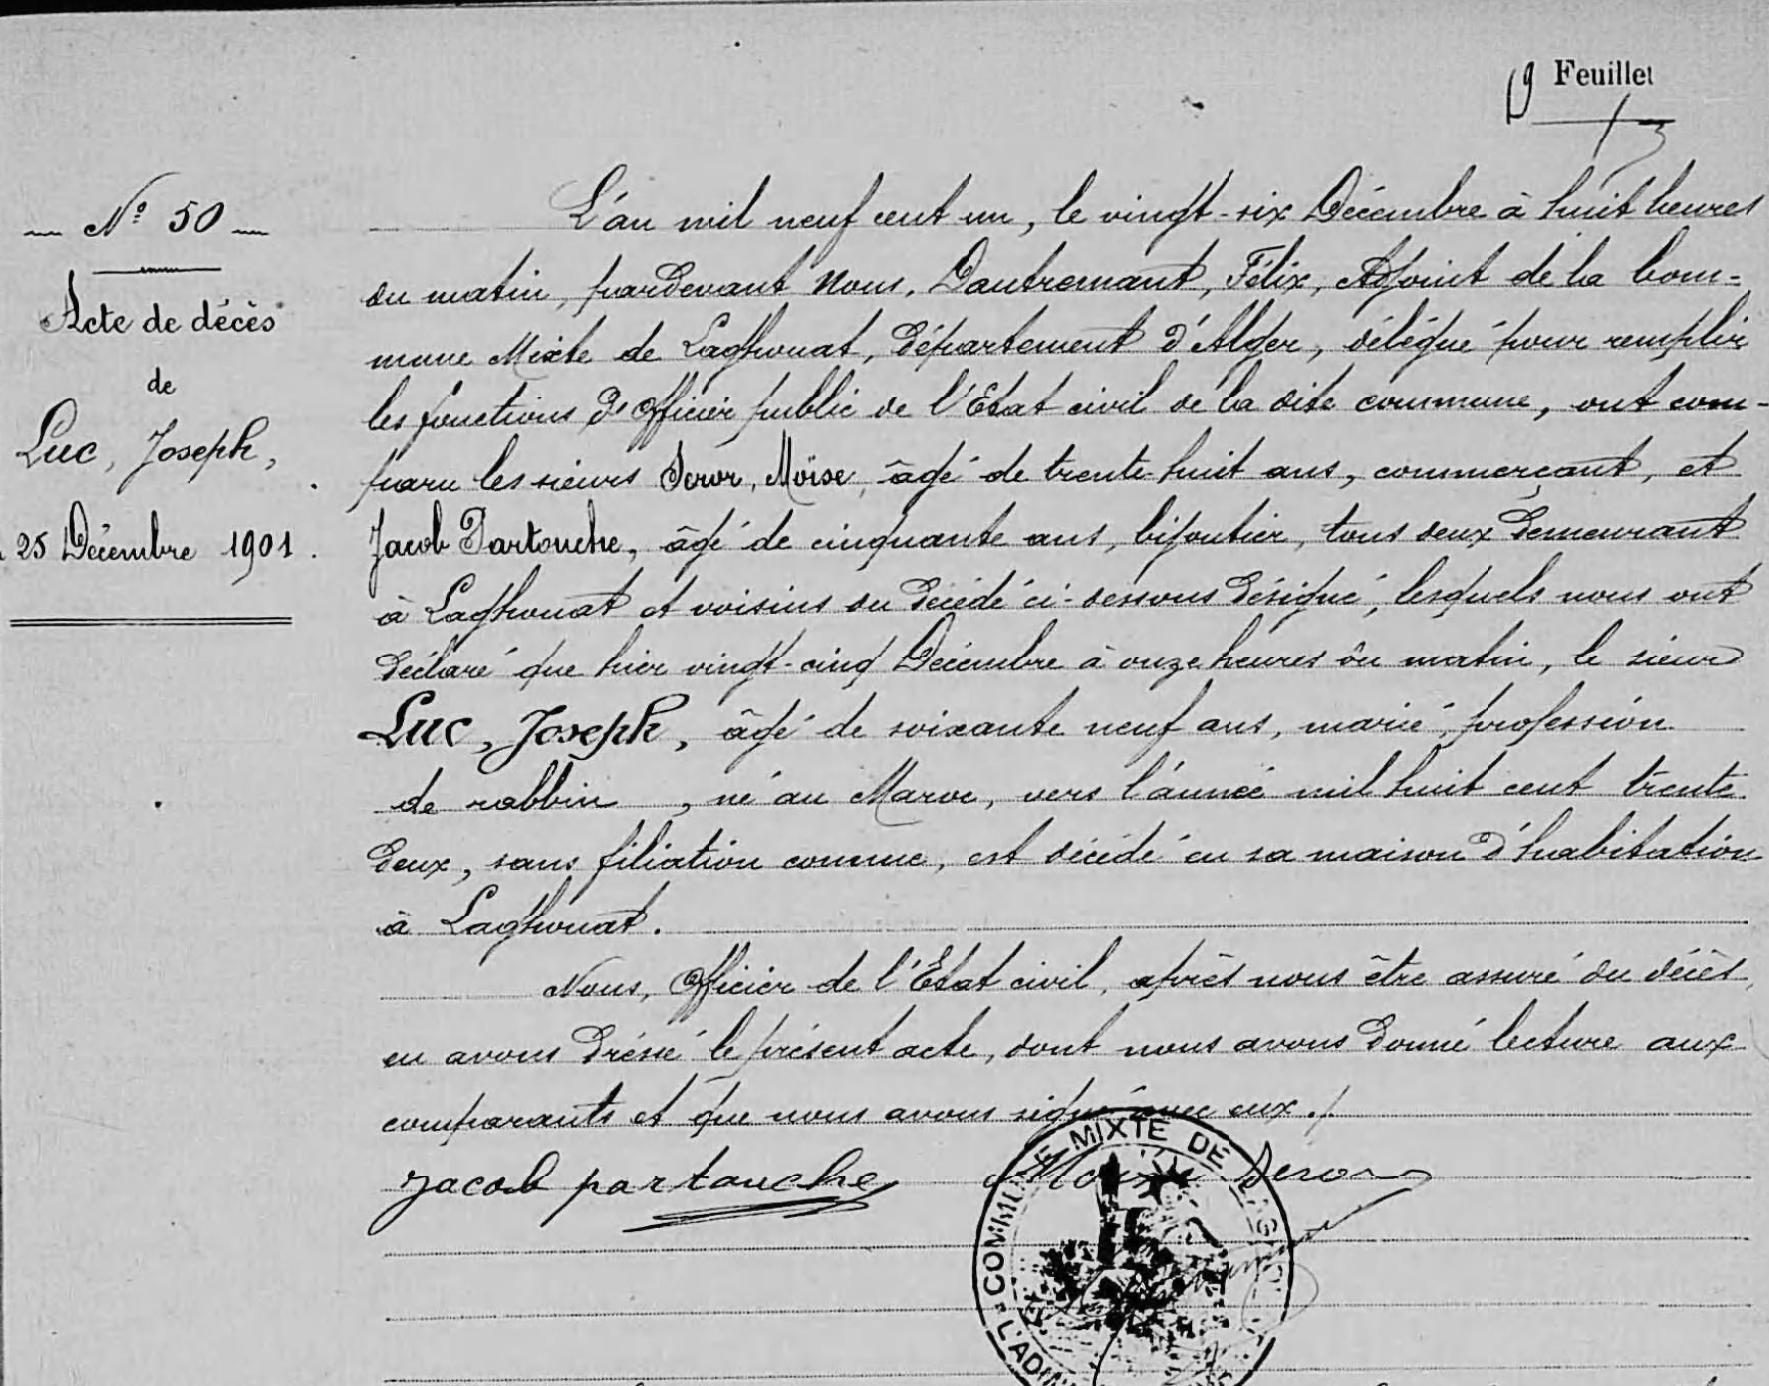 19 Feuillet
N° 50
Acte de décès
de
Luc, Joseph,
25 Décembre 1901.
L'an mil neuf cent un, le vingt-six Décembre à huit heures
du matin, pardevant Nous, Dautremant, Félix, Adjoint de la Com-
mune Mixte de Laghouat, département d'Alger, délégué pour remplir
les fonctions d'officier public de l'Etat civil de la dite commune, ont com-
paru les sieurs Seror, Moïse, âgé de trente-huit ans, commerçant, et
Jacob Partouche, âgé de cinquante ans, bijoutier, tous deux demeurant
à Laghouat et voisins du décédé ci-dessous désigné, lesquels nous ont
déclaré que hier vingt-cinq Décembre à onze heures du matin, le sieur
Luc, Joseph, âgé de soixante neuf ans, marié, profession
de rabbin, né au Maroc, vers l'année mil huit cent trente
deux, sans filiation connue, est décédé en sa maison d'habitation
à Laghouat.
Nous, Officier de l'Etat civil, après nous être assuré du décès,
en avons dressé le présent acte, dont nous avons donné lecture aux
comparants et que nous avons signé avec eux ./.
Jacob partouche Moise Seror
COMMUNE MIXTE DE
L'ADMI